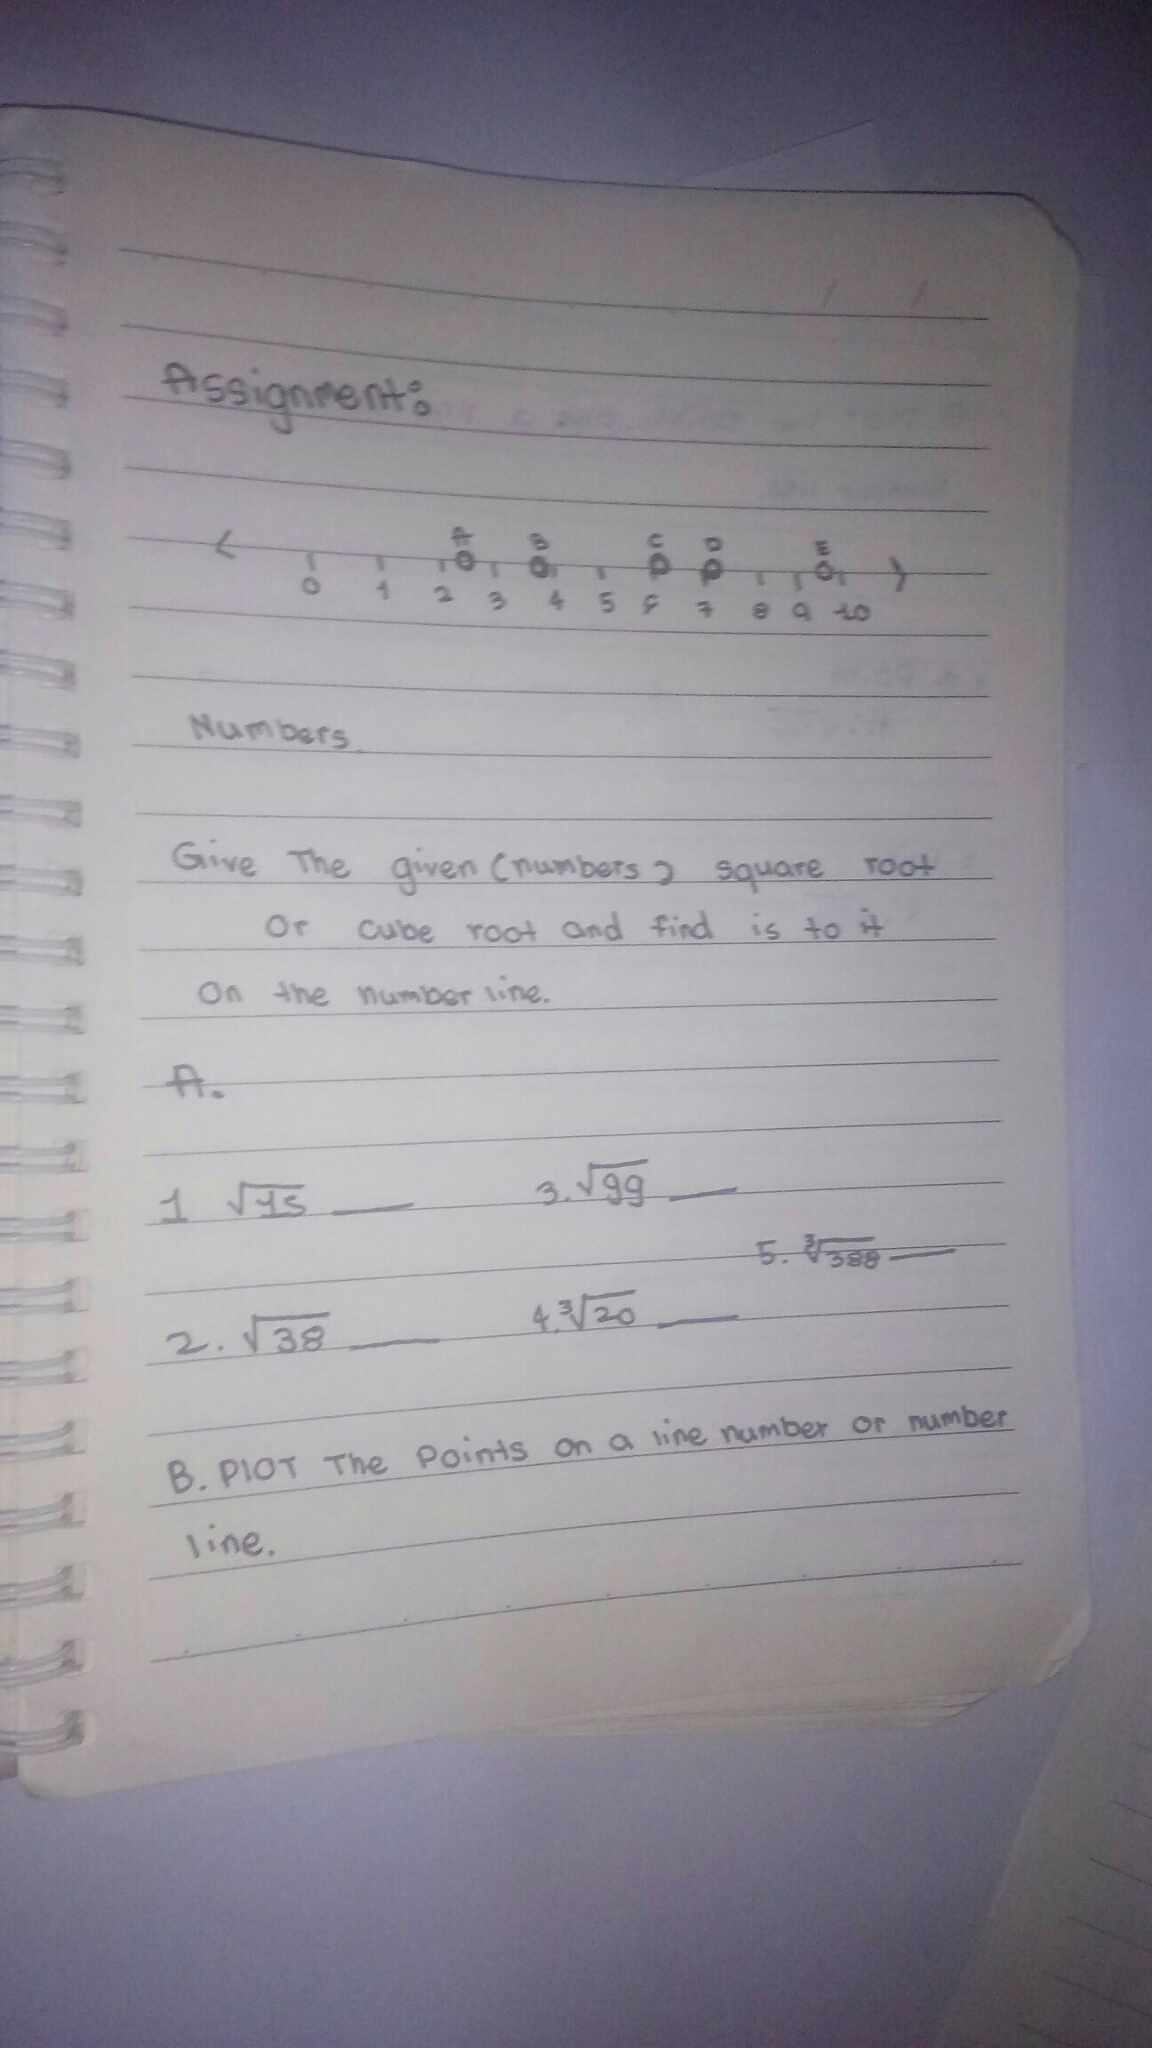 Assignment:
A B C D E
0 1 2 3 4 5 6 7 8 9 10
Numbers
Give The given (numbers) square root
or cube root and find is to it
On the number line.
A.
1 √15 ___ 3. √99 ___
5. ∛388 ___
2. √38 ___ 4. ∛20 ___
B. PlOT The Points on a line number or number
line.